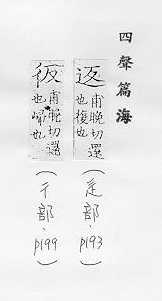 四聲篇海
返 甫晚切還
也復也
(辵部、p193)
仮 甫晚切還
也歸也
(彳部、p199)